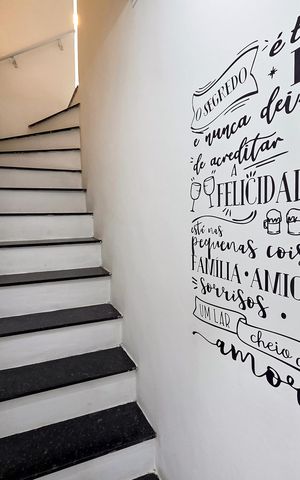 é
O SEGREDO
e nunca dei
de acreditar
A
FELICIDA
está nas
pequenas cois
FAMÍLIA • AMIG
sorrisos •
UM LAR cheio d
amor